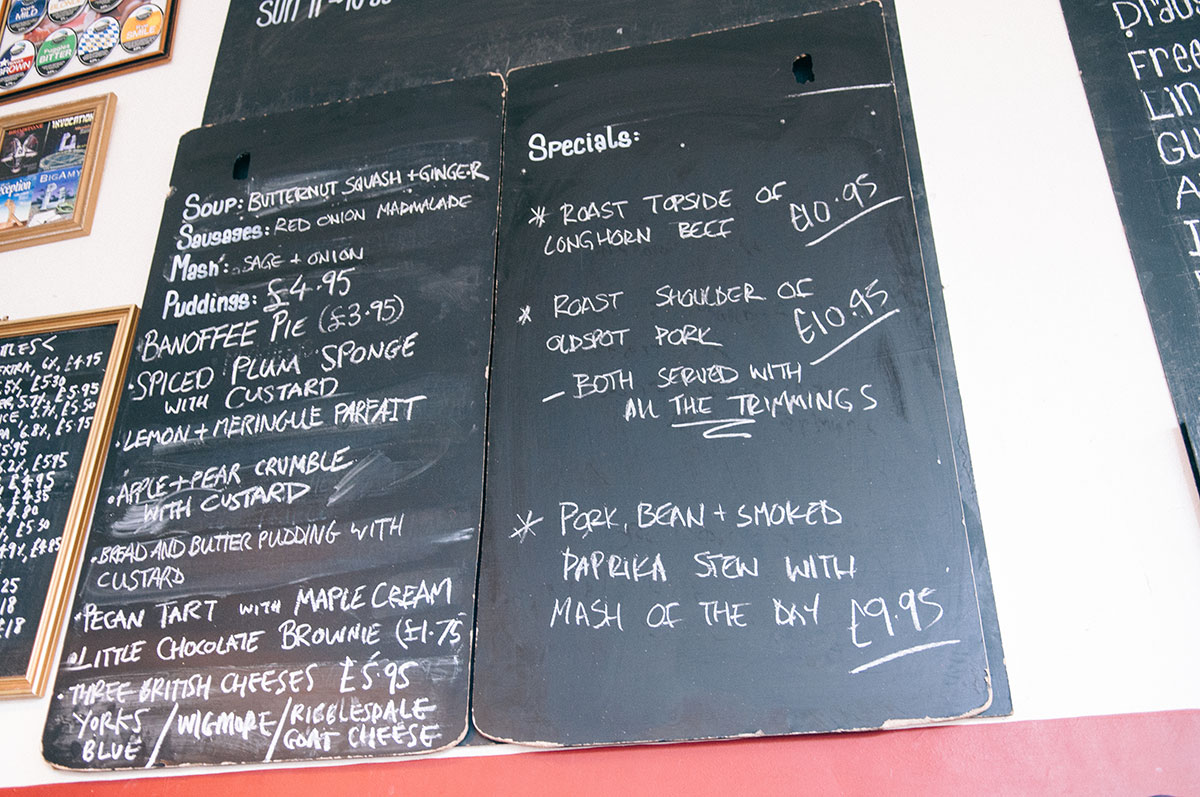 SUN 11
MILD
SMILE
BITTER
BROWN
INVOCATION
BIGAMY
£4.75
£5.30
5.7%, £5.95
5.7%, £5.50
6.8%, £5.75
£5.95
6.2%, £5.95
£4.95
£4.35
£4.80
£5.50
4.9%, £4.85
£18
Soup: BUTTERNUT SQUASH + GINGER
Sausages: RED ONION MARMALADE
Mash: SAGE + ONION
Puddings: £4.95
BANOFFEE PIE (£3.95)
• SPICED PLUM SPONGE
WITH CUSTARD
• LEMON + MERINGUE PARFAIT
• APPLE + PEAR CRUMBLE
WITH CUSTARD
• BREAD AND BUTTER PUDDING WITH
CUSTARD
• PECAN TART WITH MAPLE CREAM
• LITTLE CHOCOLATE BROWNIE (£1.75
• THREE BRITISH CHEESES £5.95
YORKS BLUE / WIGMORE / RIBBLESDALE GOAT CHEESE
Specials:
* ROAST TOPSIDE OF
LONGHORN BEEF £10.95
* ROAST SHOULDER OF
OLDSPOT PORK £10.95
– BOTH SERVED WITH
All THE TRIMMINGS
* PORK, BEAN + SMOKED
PAPRIKA STEW WITH
MASH OF THE DAY £9.95
Free